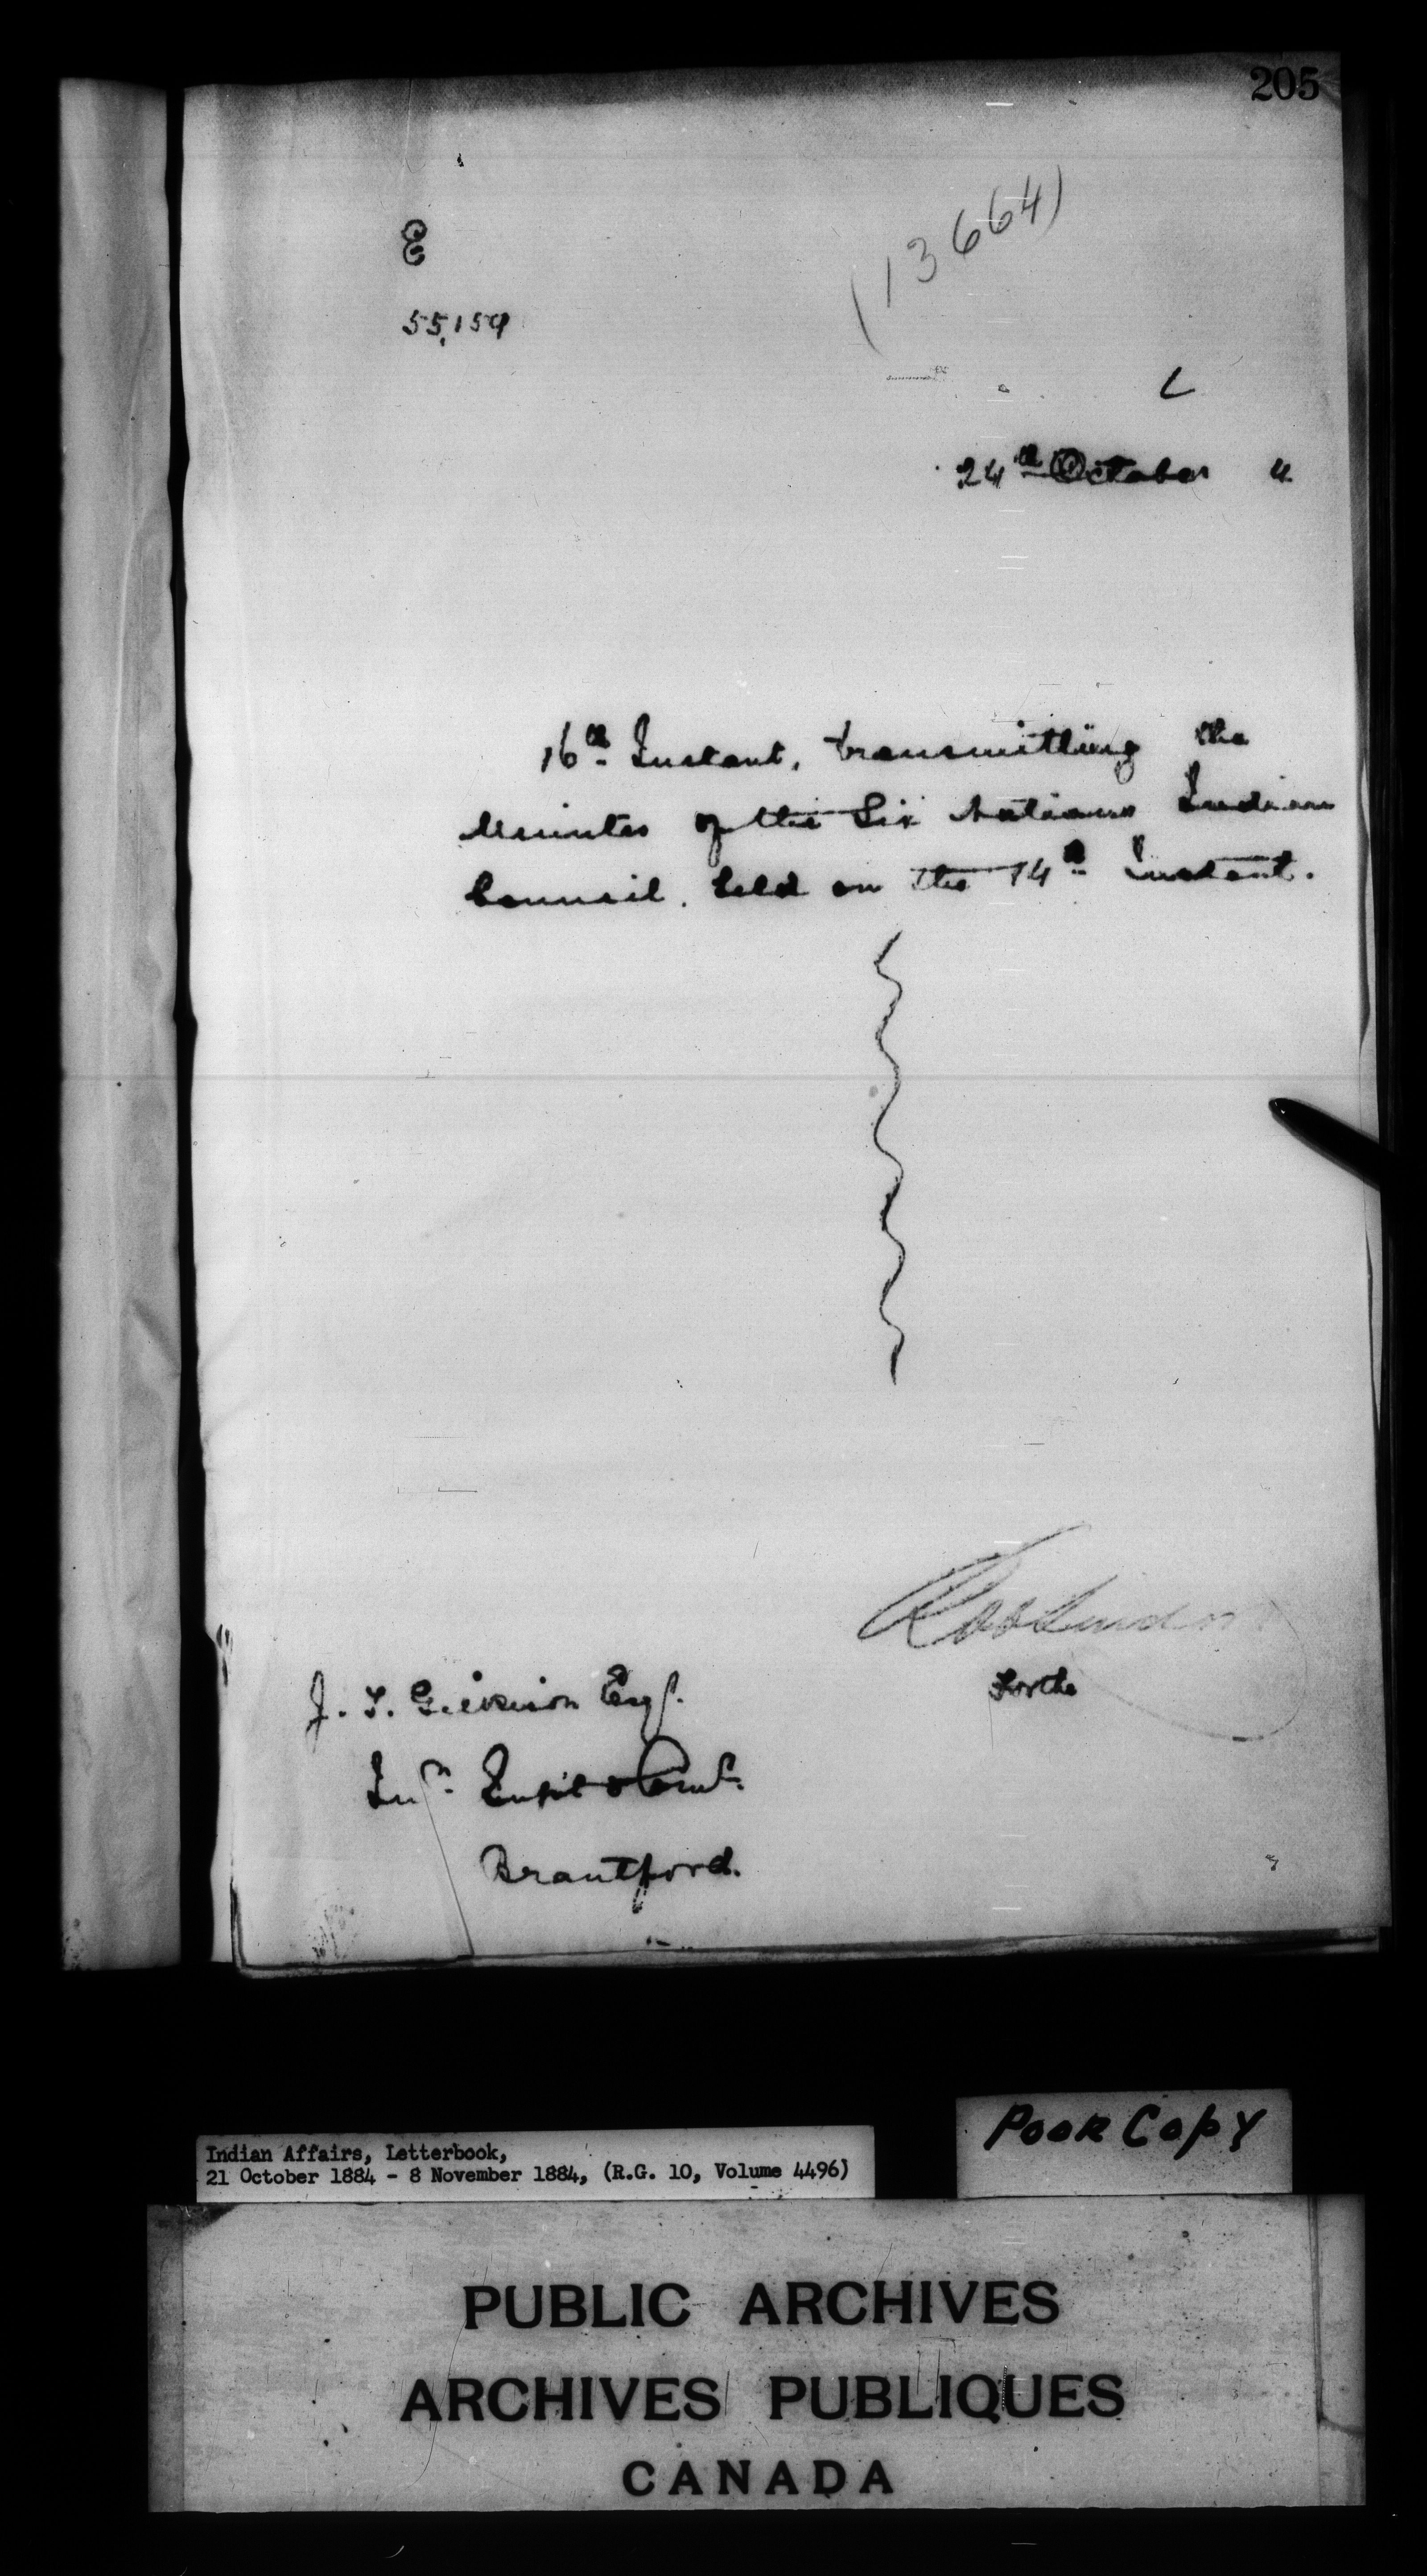 205
(13664)
E
55,159
L
24th October 4
16th Instant, transmitting the
Minutes of the Six Nations Indian
Council, held on the 14th Instant.
For the
J. T. Gilkison Esqr.
Insp. & Comr.
Brantford.
Poor Copy
Indian Affairs, Letterbook,
21 October 1884 - 8 November 1884, (R.G. 10, Volume 4496)
PUBLIC ARCHIVES
ARCHIVES PUBLIQUES
CANADA